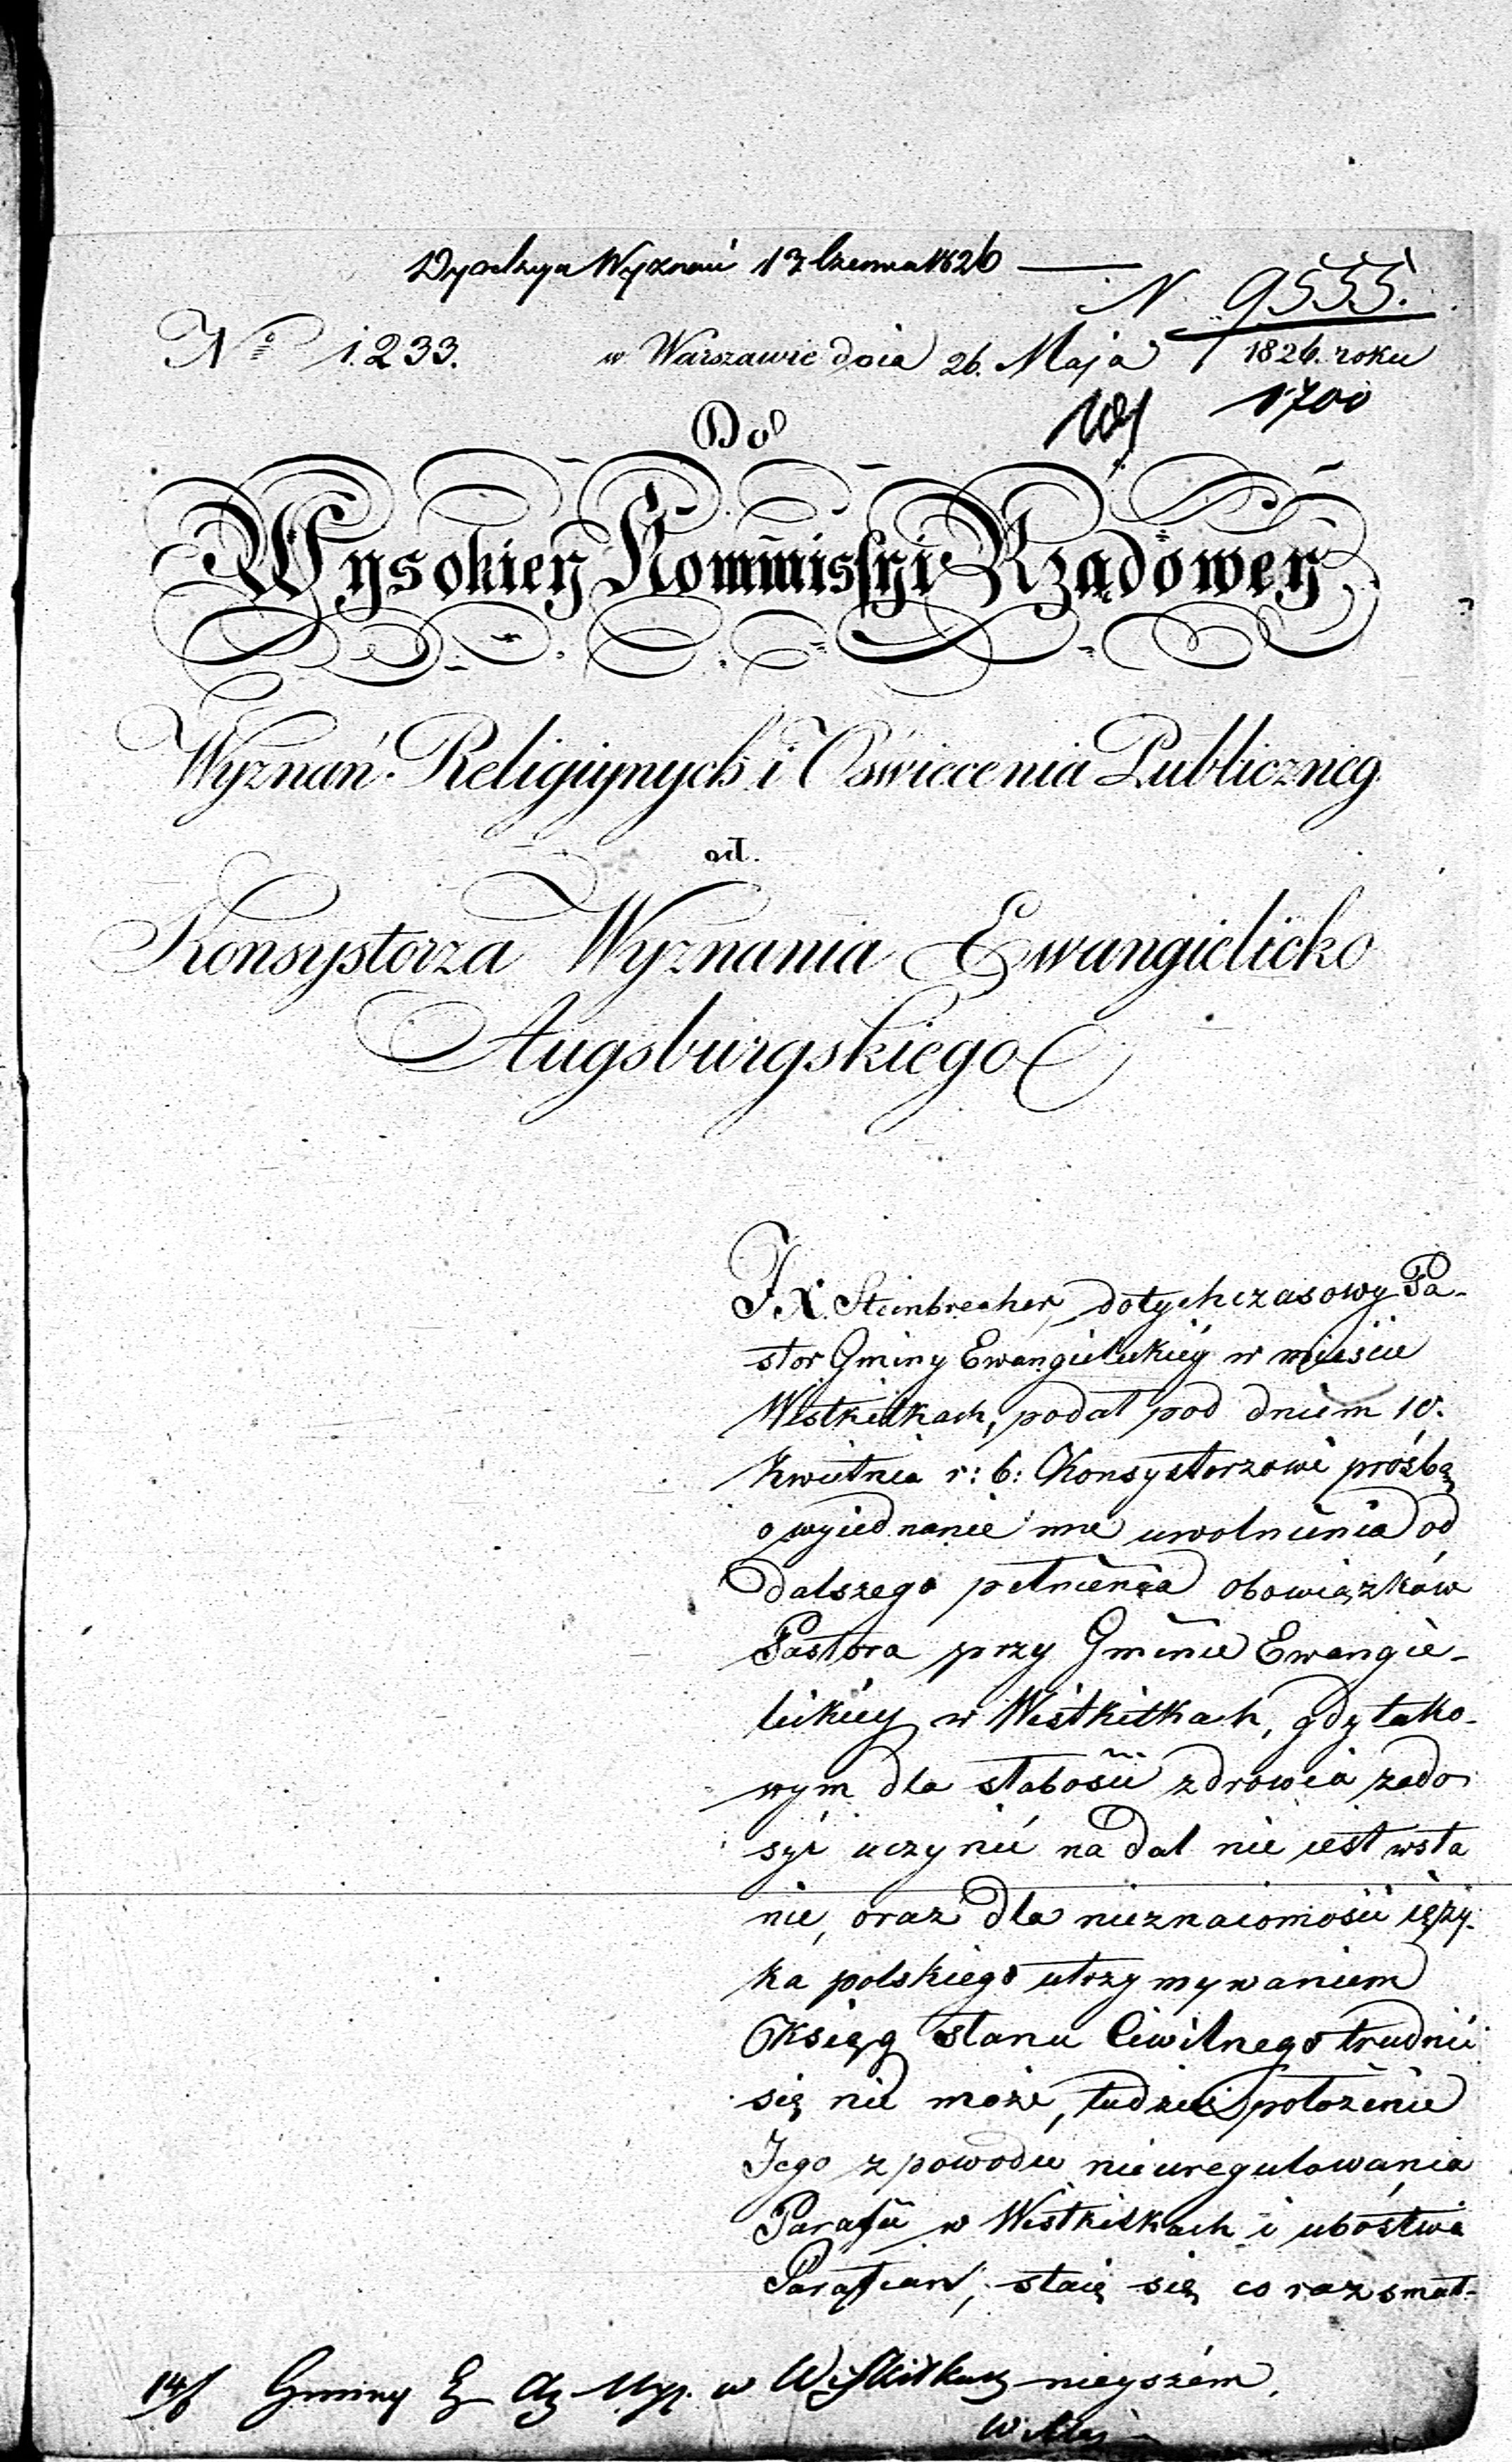 Dyrekcya Wyznań 13 Czerwca 1826
N. 9555.
No 1.233. w Warszawie dnia 26. Maja 1826. roku
1700
Do
Wysokiey Kommissyi Rządowey
Wyznań Religijnych i Oświecenia Publiczneg
od
Konsystorza Wyznania Ewangielicko
Augsburgskiego
JX. Steinbrecher, dotychczasowy Pa-
stor Gminy Ewangielickiéy w mieście
Wiskitkach, podał pod dniem 10.
Kwietnia r: b: Konsystorzowi prośbę
o wyiednanie mu uwolnienia od
dalszego pełnienia obowiązków
Pastora przy Gminie Ewangie-
lickiéy w Wiskitkach, gdy tako-
wym dla słabości zdrowia zado
syć uczynić na dal nie iest wsta
nie, oraz dla nieznaiomości ięzy-
ka polskiego utrzymywaniem
Ksiąg stanu Ciwilnego trudnić
się nie może, tudzież położenie
Jego z powodu nieuregulowania
Parafii w Wiskitkach i ubóstwa
Parafian, staie się co raz smut-
nieyszém,
14/ Gminy E A Wyz. w Wiskitkach